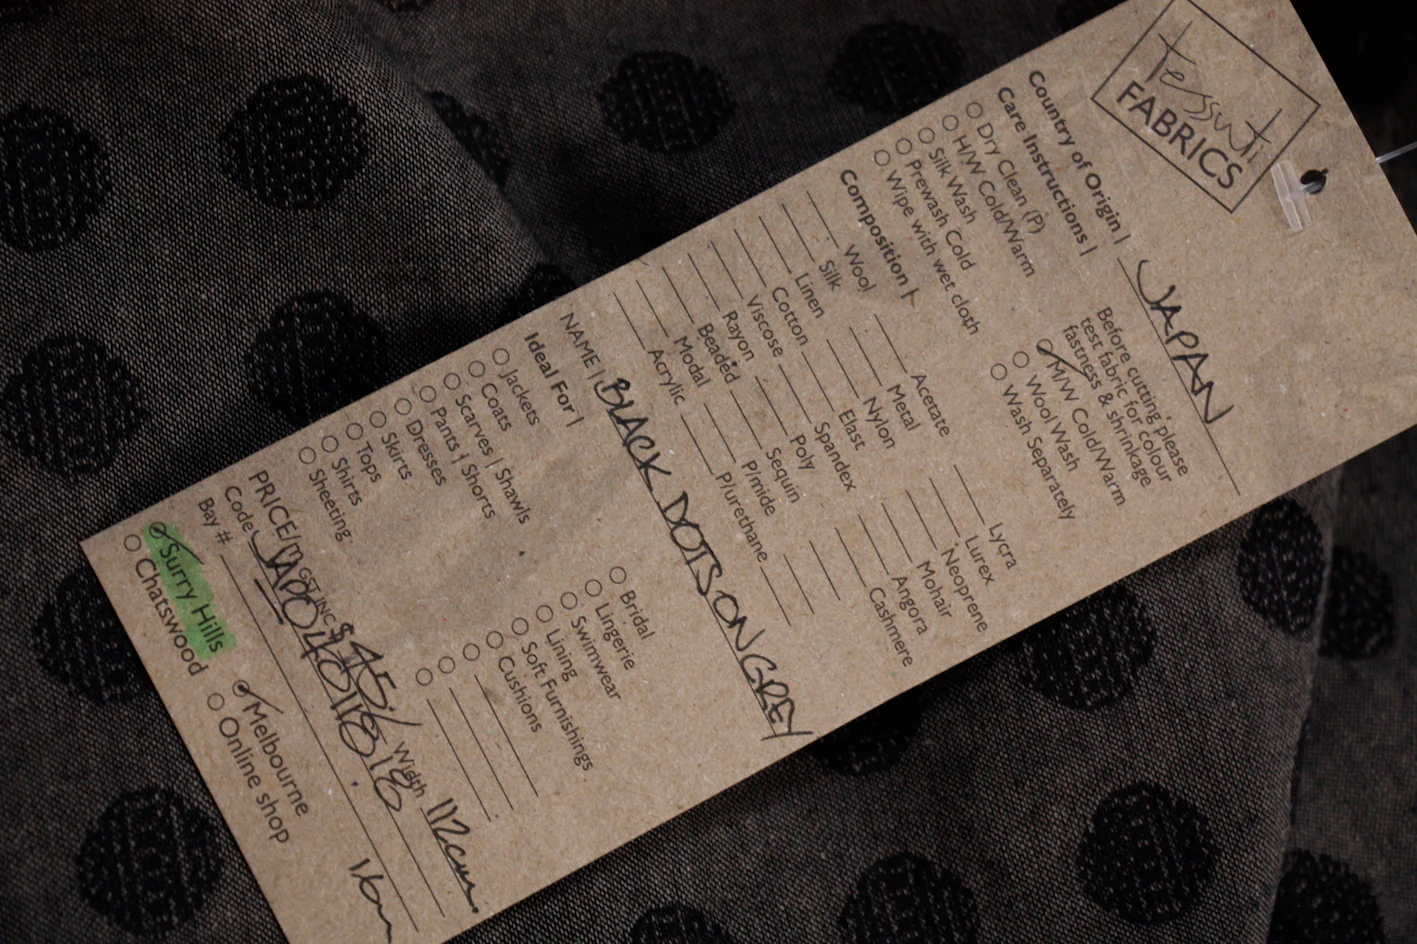 tessuti
FABRICS
Country of Origin | JAPAN
Care Instructions |
Before cutting please
test fabric for colour
fastness & shrinkage
Dry Clean (P)
H/W Cold/Warm
Silk Wash
Prewash Cold
Wipe with wet cloth
M/W Cold/Warm
Wool Wash
Wash Separately
Composition |
Wool
Silk
Linen
Cotton
Viscose
Rayon
Beaded
Modal
Acrylic
Acetate
Metal
Nylon
Elast
Spandex
Poly
Sequin
P/mide
P/urethane
Lycra
Lurex
Neoprene
Mohair
Angora
Cashmere
NAME | BLACK DOTS ON GREY
Ideal For |
Jackets
Coats
Scarves | Shawls
Pants | Shorts
Dresses
Skirts
Tops
Shirts
Sheeting
Bridal
Lingerie
Swimwear
Lining
Soft Furnishings
Cushions
PRICE/m GST INC $45/ Width 112cm
Code
Bay #
Surry Hills
Chatswood
Melbourne
Online shop